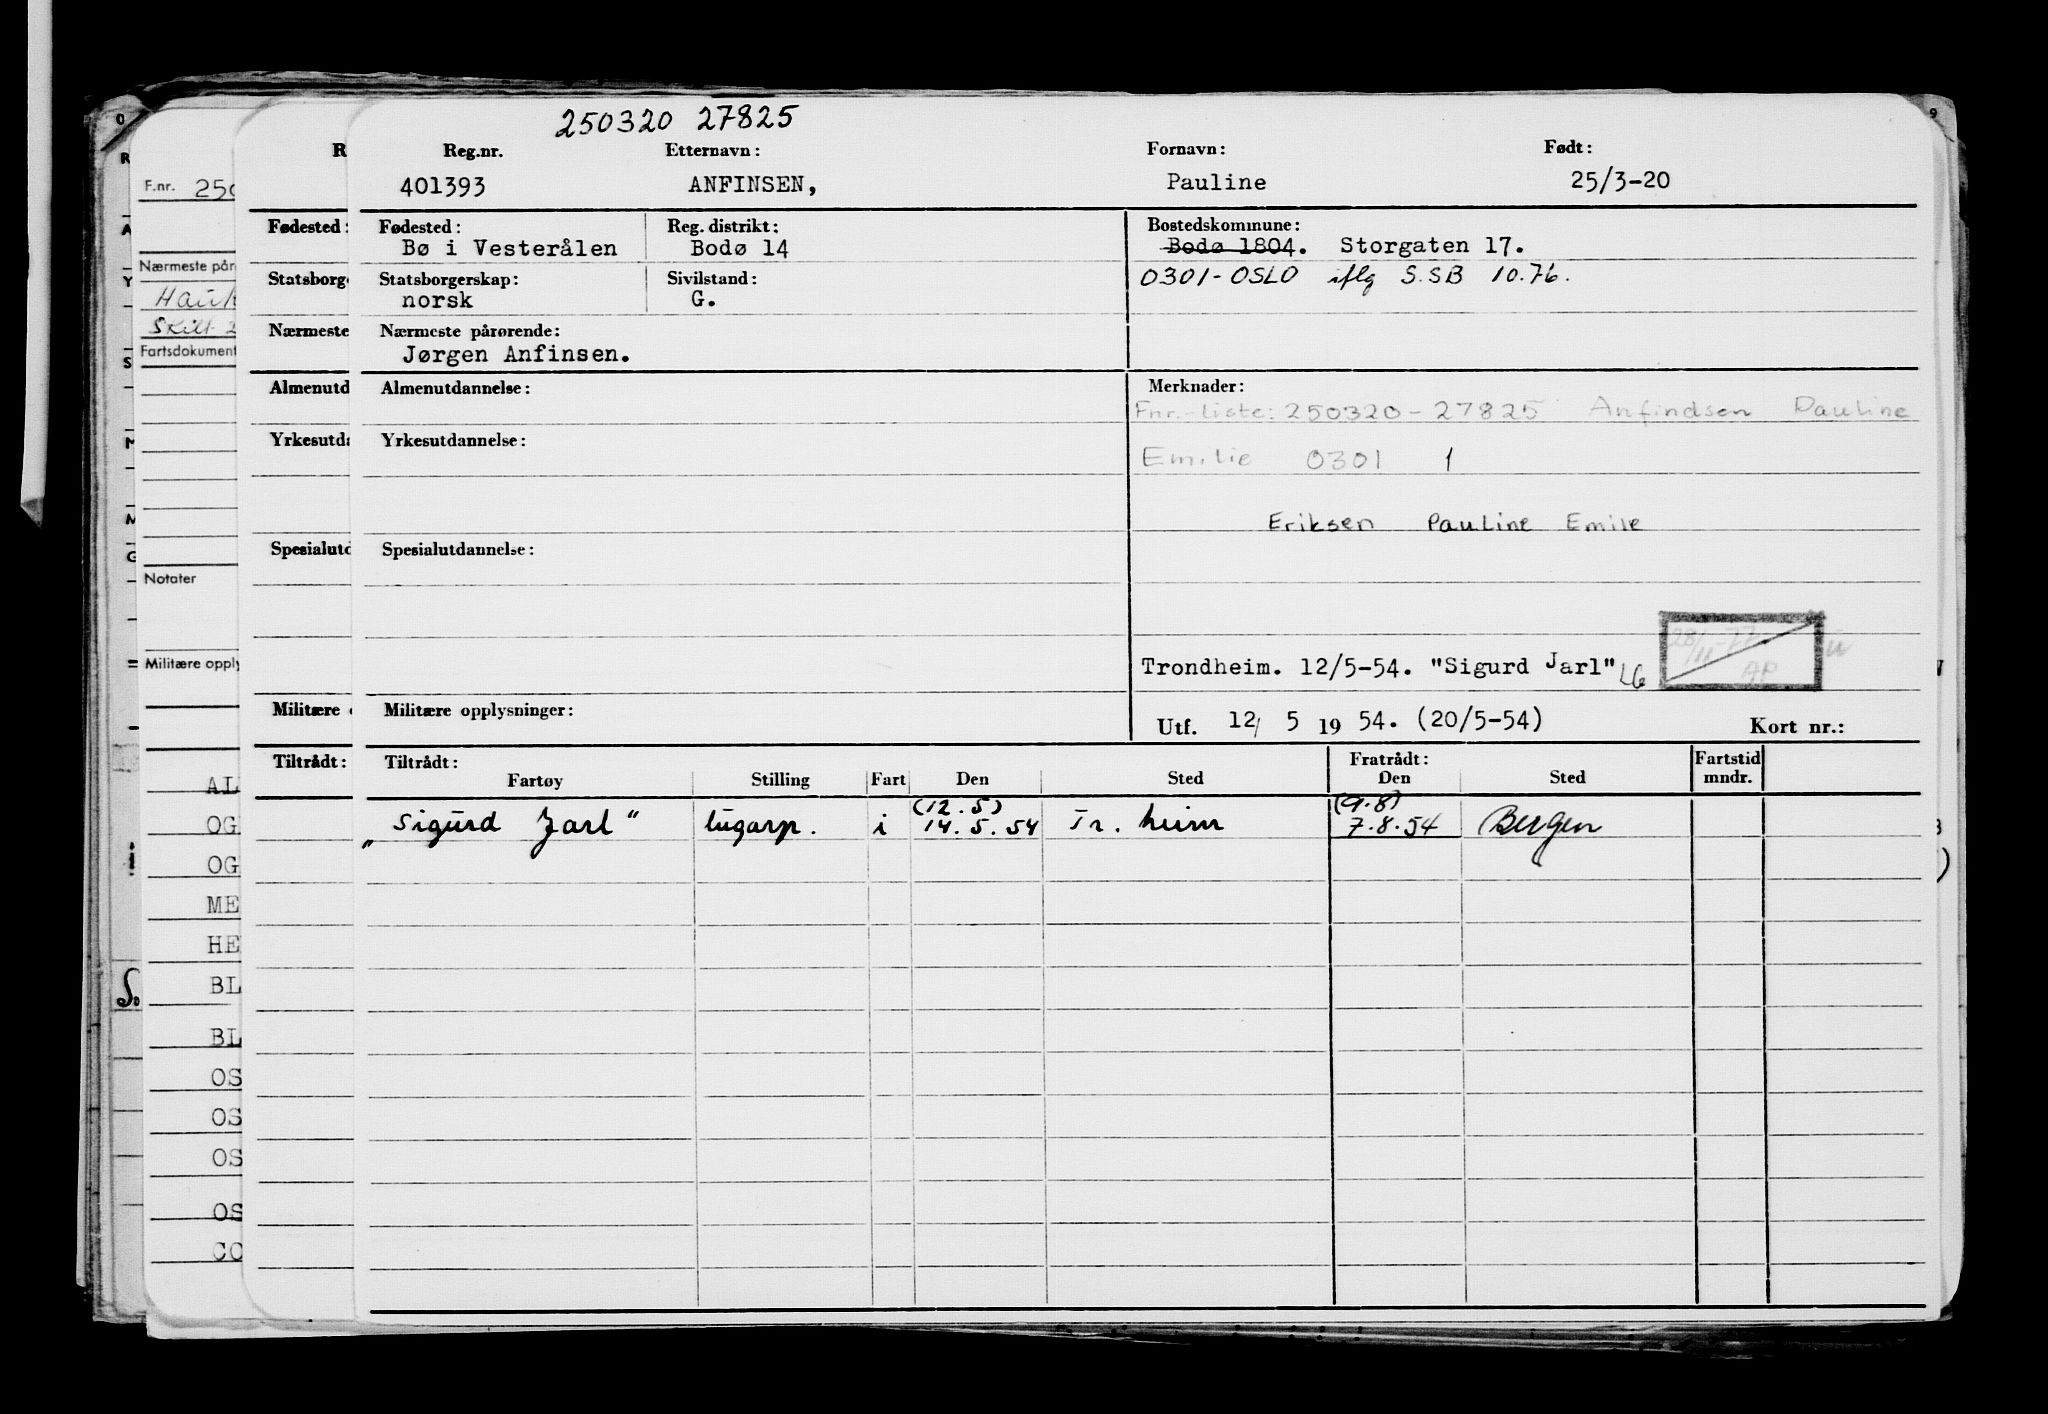 250320 27825
Reg.nr. Etternavn: Fornavn: Født:
401393 ANFINSEN, Pauline 25/3-20
Fødested: Reg. distrikt: Bostedskommune:
Bø i Vesterålen Bodø 14 Bodø 1804. Storgaten 17.
Statsborgerskap: Sivilstand: 0301-OSLO iflg S.SB 10.76.
norsk G.
Nærmeste pårørende:
Jørgen Anfinsen.
Almenutdannelse: Merknader:
Fnr.-liste: 250320-27825 Anfindsen Pauline
Yrkesutdannelse:
Emilie 0301 1
Eriksen Pauline Emile
Spesialutdannelse:
28/11-77 AP
Trondheim. 12/5-54. "Sigurd Jarl" LG
Militære opplysninger:
Utf. 12/ 5 19 54. (20/5-54) Kort nr.:
Tiltrådt: Fratrådt: Fartstid
Fartøy Stilling Fart Den Sted Den Sted mndr.
(12.5) (9.8)
"Sigurd Jarl" lugarp. i 14.5.54 Tr.heim 7.8.54 Bergen
F.nr. 250
Nærmeste pår
Hauk
Skilt
Fartsdokument
Notater
Militære opply
AL
OG
OG
ME
HE
BL
BL
OS
OS
OS
OS
CC
R
Fødested:
Statsborge
Nærmeste
Almenutd
Yrkesutda
Spesialutd
Militære
Tiltrådt: